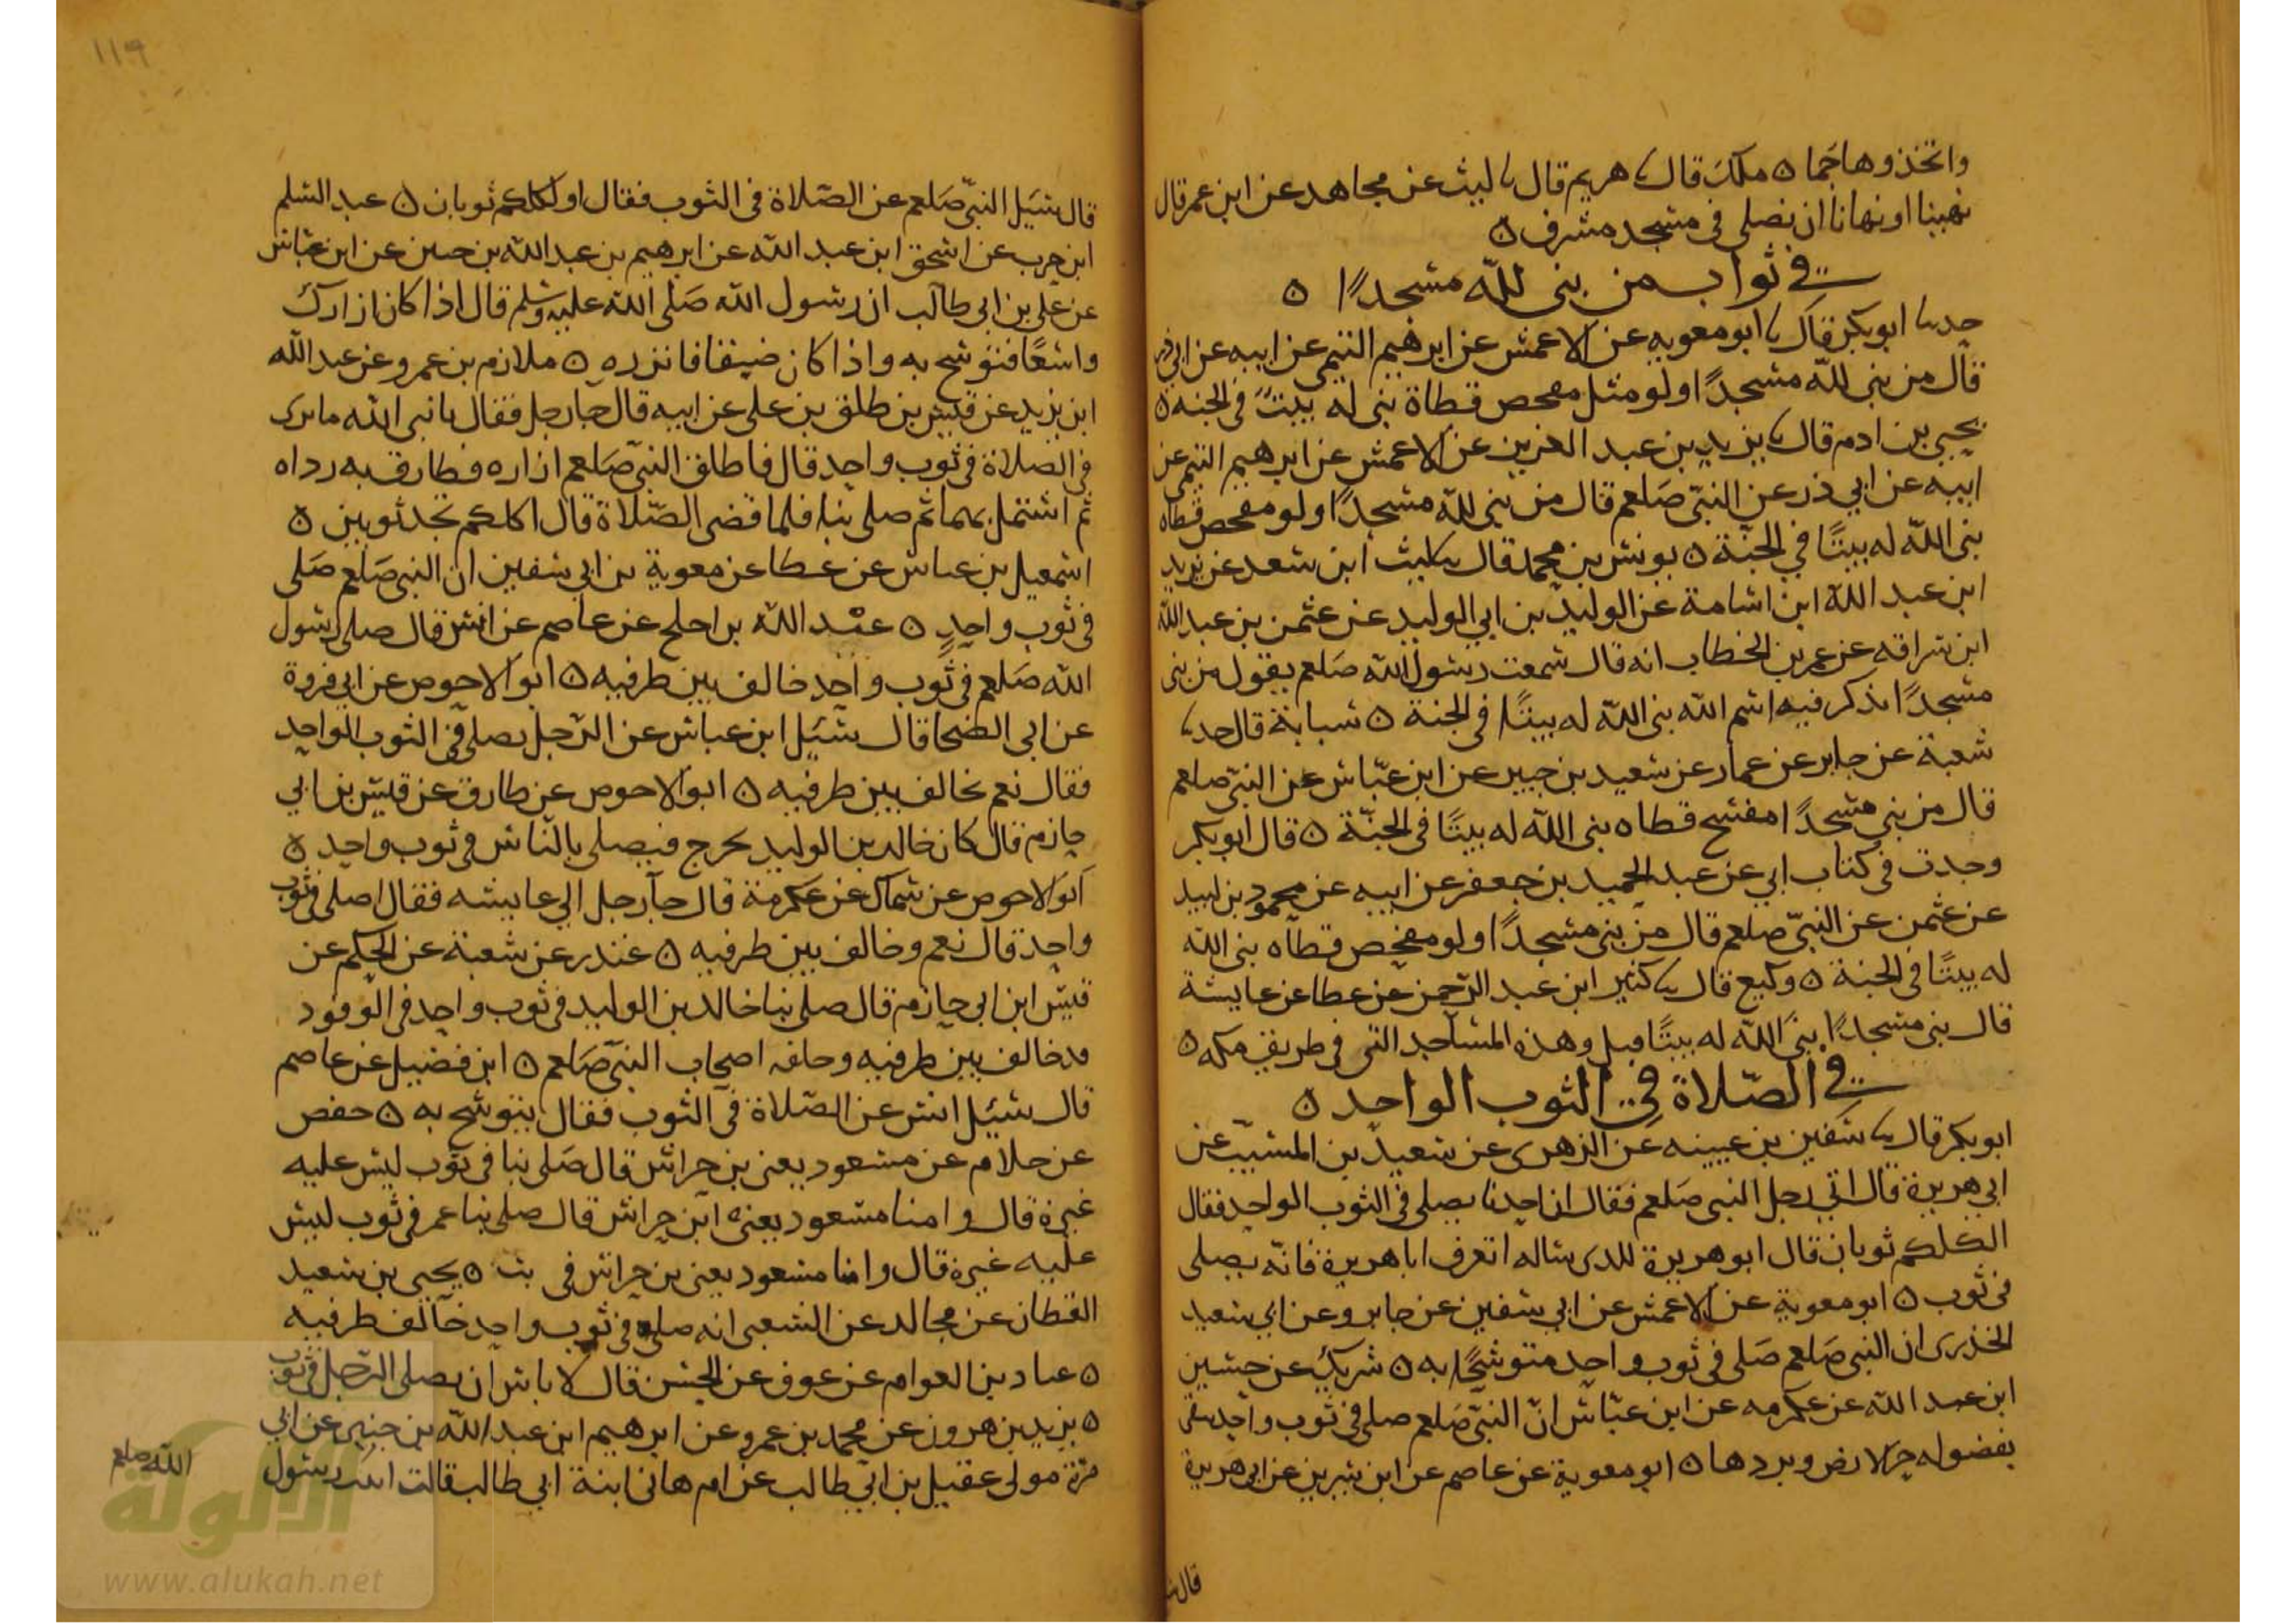 واتخذوها جما ٥ ملك قال ثنا هريم قال ثنا ليث عن مجاهد عن ابن عمر قال
نهينا او نهانا ان نصلى فى مسجد مشرف ٥
فى ثواب من بنى لله مسجدًا ٥
حدثنا ابو بكر قال ثنا ابو معوية عن الاعمش عن ابرهيم التيمى عن ابيه عن ابى ذر
قال من بنى لله مسجدًا ولو مثل مفحص قطاة بنى له بيت فى الجنه ٥
يحيى بن ادم قال ثنا يزيد بن عبد العزيز عن الاعمش عن ابرهيم التيمى عن
ابيه عن ابي ذر عن النبى صلعم قال من بنى لله مسجدًا ولو مفحص قطاه
بنى الله له بيتًا في الجنة ٥ يونس بن محمد قال ثنا ليث ابن سعد عن يزيد
ابن عبد الله ابن اسامة عن الوليد بن ابي الوليد عن عثمن بن عبد الله
ابن سراقه عن عمر بن الخطاب انه قال سمعت رسول الله صلعم يقول من بنى
مسجدًا يذكر فيه اسم الله بنى الله له بيتًا فى الجنة ٥ شبابة قال حدثنا
شعبة عن جابر عن عمار عن سعيد بن جبير عن ابن عبّاس عن النبىّ صلعم
قال من بنى مسجدًا مفتح قطاه بنى الله له بيتًا فى الجنّة ٥ قال ابو بكر
وجدت فى كتاب ابي عن عبد الحميد بن جعفر عن ابيه عن محمود بن لبيد
عن عثمن عن النبىّ صلعم قال من بنى مسجدًا ولو مفحص قطاه بنى الله
له بيتًا فى الجنة ٥ وكيع قال ثنا كثير ابن عبد الرحمن عن عطا عن عايشة
قال بنى مسجدًا بنى الله له بيتًا قيل وهذه المساجد التى فى طريق مكه ٥
فى الصّلاة فى الثوب الواحد ٥
ابو بكر قال ثنا سفين بن عيينه عن الزهرى عن سعيد بن المسيّب عن
ابي هريرة قال اتي رجل النبى صلعم فقال ان احدنا يصلى فى الثوب الواحد فقال
الكلكم ثوبان قال ابو هريرة للدى ساله اتعرف ابا هريرة فانّه يصلى
فى ثوب ٥ ابو معوية عن الاعمش عن ابي سفين عن جابر وعن ابي سعيد
الخذرى ان النبى صلعم صلى فى ثوب واحد متوشحًا به ٥ شريك عن حسين
ابن عبد الله عن عكرمه عن ابن عبّاس انّ النبىّ صلعم صلى فى ثوب واحد يتقى
بفضوله حر الارض وبردها ٥ ابو معوية عن عاصم عن ابن سيرين عن ابى هريرة
١١٩
قال سئيل النبىّ صلعم عن الصّلاة فى الثوب فقال او لكلكم ثوبان ٥ عبد السلم
ابن حرب عن اسحق ابن عبد الله عن ابرهيم بن عبد الله بن حنين عن ابن عباس
عن على بن ابى طالب ان رسول الله صلى الله عليه وسلم قال اذا كان ازارك
واسعًا فتوشح به واذا كان ضيقا فاتزره ٥ ملازم بن عمرو عن عبد الله
ابن يزيد عن قيس بن طلق بن على عن ابيه قال جا رجل فقال يا نبى الله ما ترى
فى الصلاة فى ثوب واحد قال فاطلق النبى صلعم ازاره فطارق به رداه
ثم اشتمل بهما ثم صلى بنا فلما قضى الصّلاة قال اكلكم يجد ثوبين ٥
اسمعيل بن عياش عن عطا عن معوية بن ابي سفين ان النبى صلعم صلى
فى ثوب واحدٍ ٥ عبد الله بن اجلح عن عاصم عن انس قال صلى رسول
الله صلعم فى ثوب واحد خالف بين طرفيه ٥ ابو الاحوص عن ابى فروة
عن ابى الضحا قال سئيل ابن عباس عن الرّجل يصلى فى الثوب الواحد
فقال نعم يخالف بين طرفيه ٥ ابو الاحوص عن طارق عن قيس بن ابي
حازم قال كان خالد بن الوليد يخرج فيصلى بالناس فى ثوب واحد ٥
ابو الاحوص عن سماك عن عكرمة قال جآ رجل الى عايشه فقال اصلى فى ثوب
واحد قال نعم وخالف بين طرفيه ٥ غندر عن شعبة عن الحكم عن
قيس ابن ابى حازم قال صلى بنا خالد بن الوليد فى ثوب واحد فى الوفود
قد خالف بين طرفيه وخلفه اصحاب النبى صلعم ٥ ابن فضيل عن عاصم
قال سئيل انس عن الصّلاة فى الثوب فقال يتوشح به ٥ حفص
عن حلام عن مسعود يعنى بن حراش قال صلى بنا فى ثوب ليس عليه
غيره قال وامنا مسعود يعنى ابن حراش قال صلى بنا عمر فى ثوب ليس
عليه غيره قال وامنا مسعود يعنى بن حراش فى ٥ يحيى بن سعيد
القطان عن مجالد عن الشعبى انه صلى فى ثوب واحد خالف طرفيه
٥ عباد بن العوام عن عوف عن الحسن قال لا باس ان يصلى الرّجل فى ثوب
٥ يزيد بن هرون عن محمد بن عمرو عن ابرهيم ابن عبد الله بن حنين عن ابى
مرّة مولى عقيل بن ابي طالب عن ام هانى ابنة ابي طالب قالت رسول
الله صلعم
قال
الألوكة
www.alukah.net